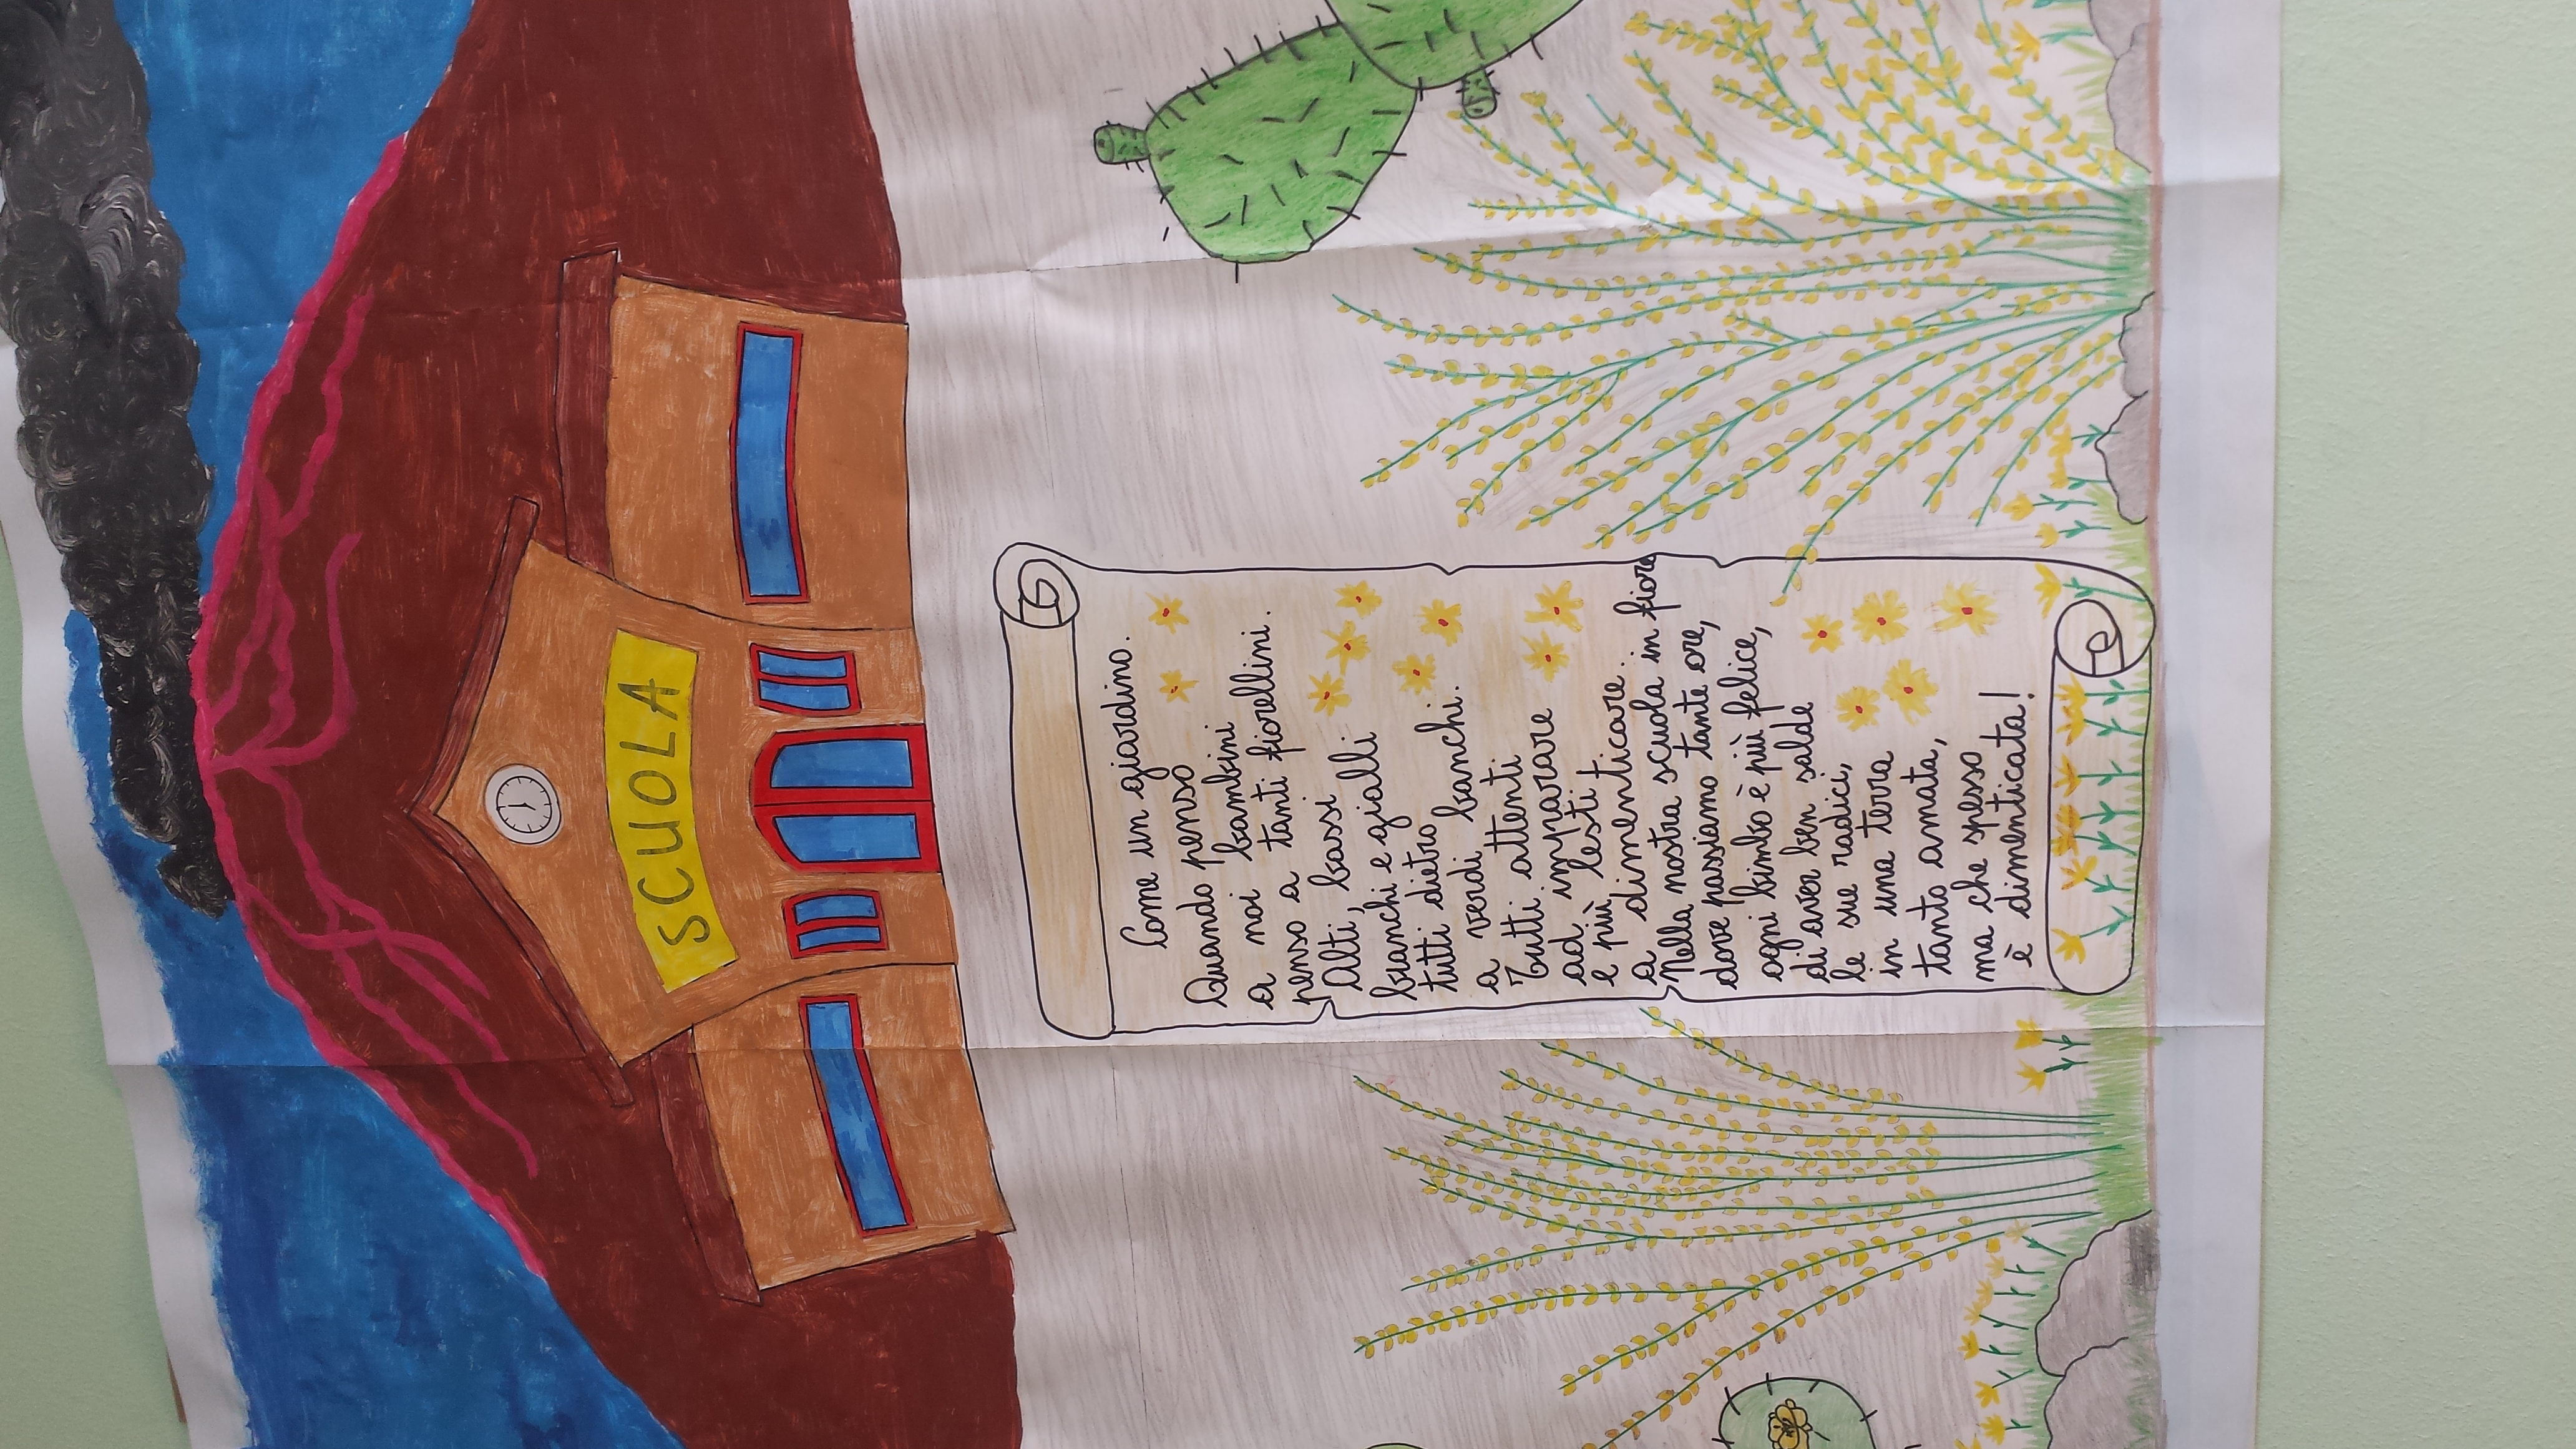 SCUOLA
Come un giardino.
Quando penso
a noi bambini
penso a tanti fiorellini.
Alti, bassi
bianchi e gialli
tutti dietro
a verdi banchi.
Tutti attenti
ad imparare
e più lesti
a dimenticare.
Nella nostra scuola in fiore
dove passiamo tante ore,
ogni bimbo è più felice,
di aver ben salde
le sue radici,
in una terra
tanto amata,
ma che spesso
è dimenticata!